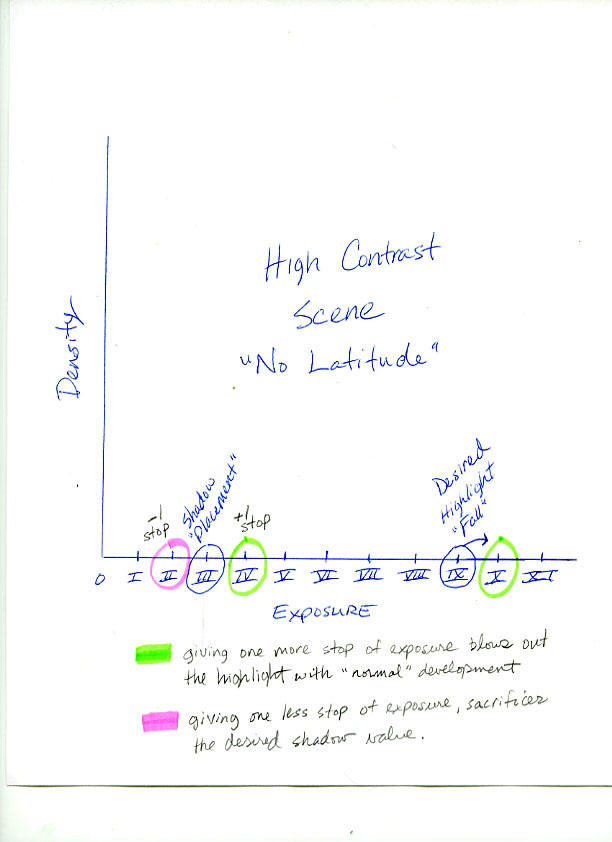 High Contrast
Scene
"No Latitude"
Density
-1
stop
Shadow
"Placement"
+1
stop
Desired
Highlight
"Fall"
0 I II III IV V VI VII VIII IX X XI
EXPOSURE
giving one more stop of exposure blows out
the highlight with "normal" development
giving one less stop of exposure, sacrifices
the desired shadow value.